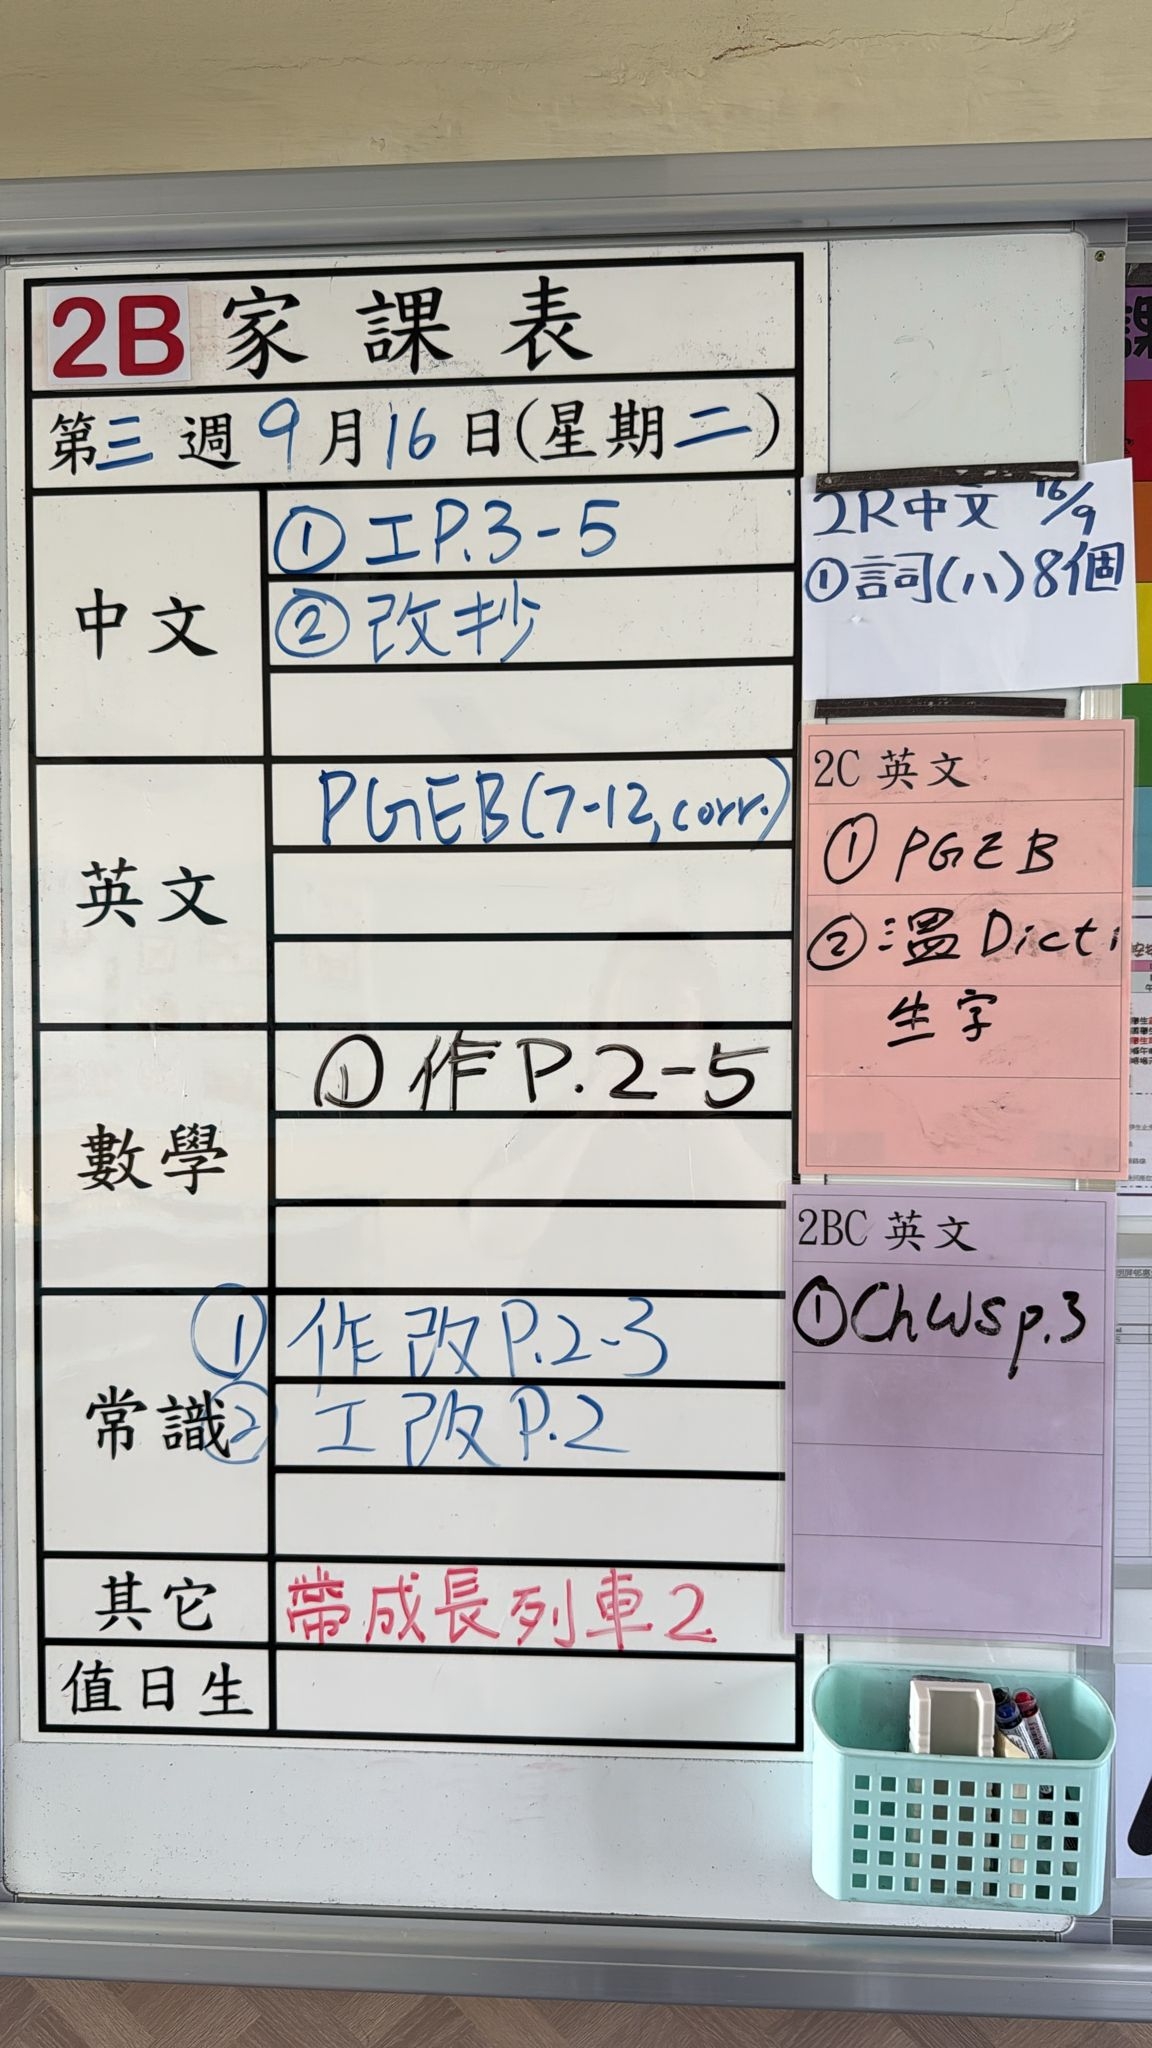 2B 家課表
第三週9月16日(星期二)
中文
① 工P.3-5
② 改抄
英文
PGEB(7-12, corr.)
數學
① 作P.2-5
常識
① 作改P.2-3
② 工改P.2
其它
帶成長列車2
值日生
2R中文 16/9
①詞(八)8個
2C 英文
① PGEB
② 溫Dicti
生字
2BC 英文
①ChWS p.3